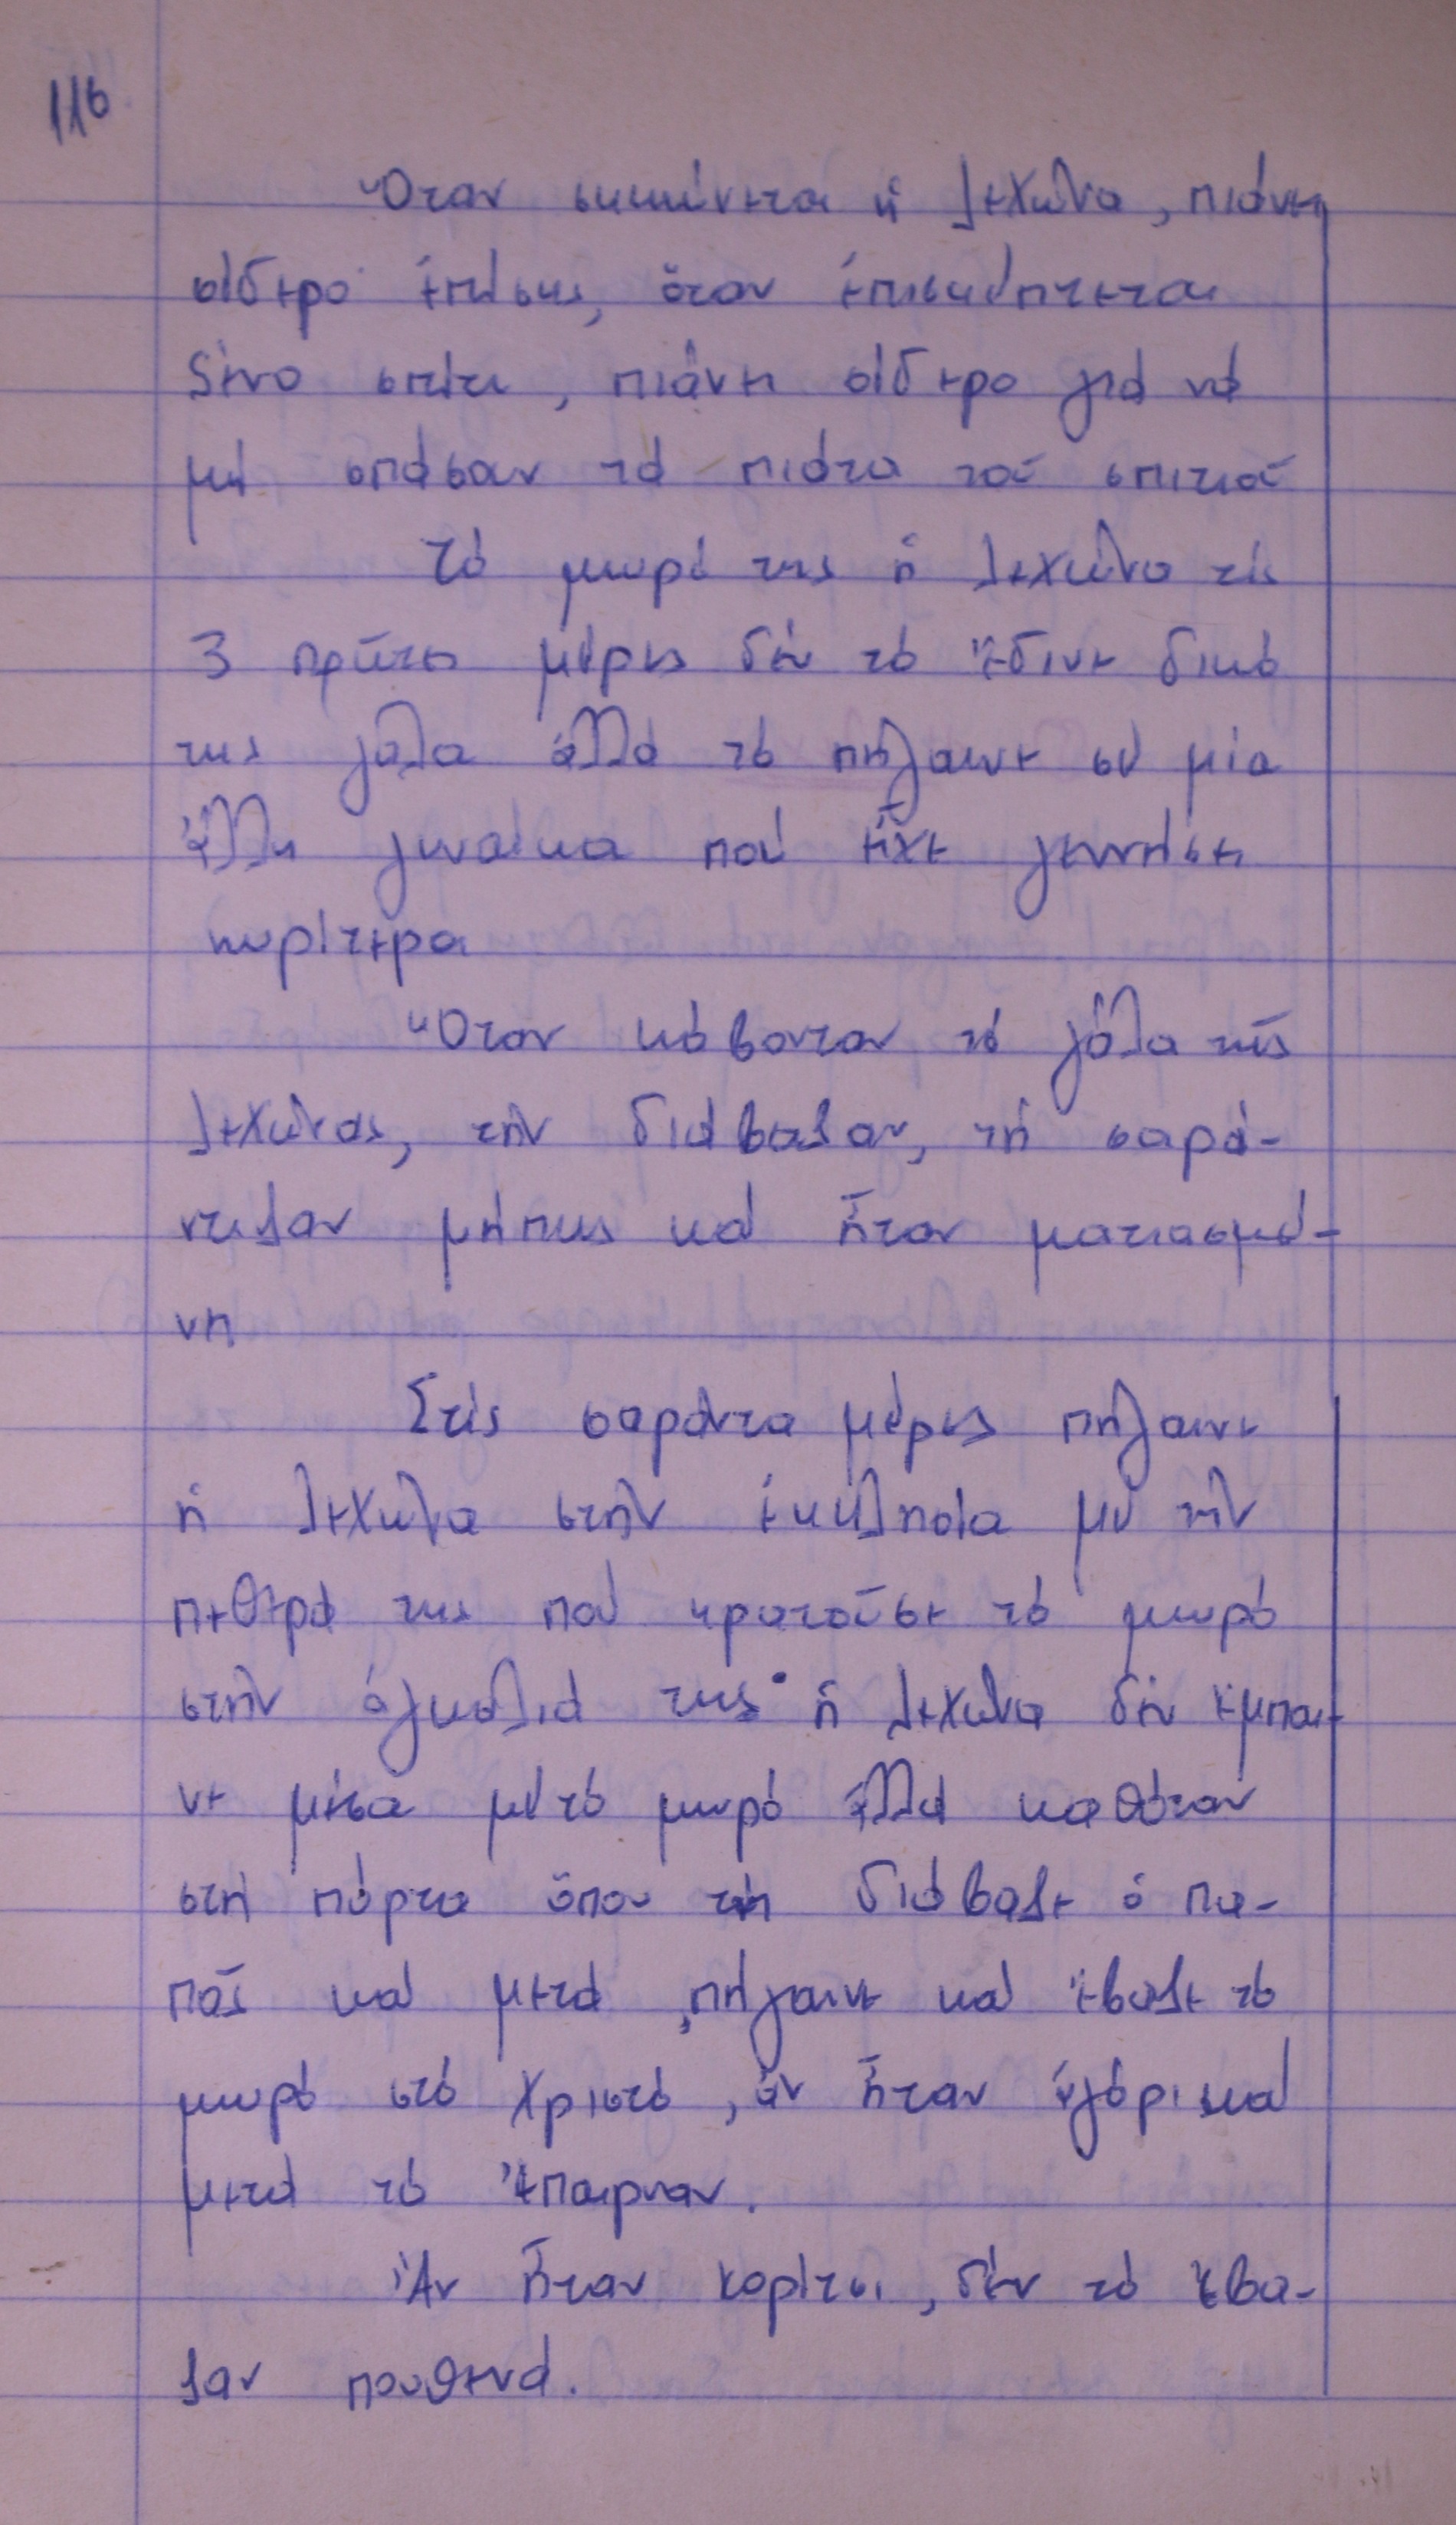 116
Ὅταν σηκώνεται ἡ λεχώνα, πιάνει
σίδερο ἐπίσης, ὅταν ἐπισκέπτεται
ξένο σπίτι, πιάνει σίδερο γιά νά
μή σπάσουν τά πιάτα τοῦ σπιτιοῦ
Τό μωρό της ἡ λεχώνα τίς
3 πρῶτες μέρες δέν τό ἔδινε δικό
της γάλα ἀλλά τό πήγαινε σέ μία
ἄλλη γυναίκα πού εἶχε γεννήσει
νωρίτερα
Ὅταν κόβονταν τό γάλα τῆς
λεχώνας, τήν διάβαζαν, τή σαρά-
ντιζαν μήπως καί ἦταν ματιασμέ-
νη
Στίς σαράντα μέρες πήγαινε
ἡ λεχώνα στήν ἐκκλησία μέ τήν
πεθερά της πού κρατοῦσε τό μωρό
στήν ἀγκαλιά της· ἡ λεχώνα δέν ἔμπαι-
νε μέσα μέ τό μωρό ἀλλά καθόταν
στή πόρτα ὅπου τή διάβαζε ὁ πα-
πᾶς καί μετά πήγαινε καί ἔβαζε τό
μωρό στό Χριστό, ἄν ἦταν ἀγόρι καί
μετά τό ἔπαιρναν.
Ἄν ἦταν κορίτσι, δέν τό ἔβα-
ζαν πουθενά.